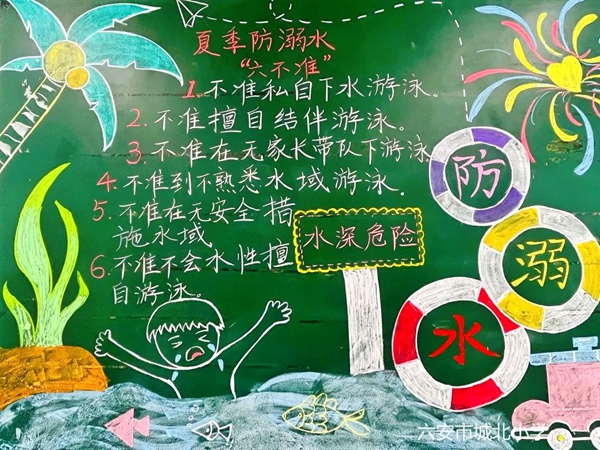 夏季防溺水
“六不准”
1.不准私自下水游泳。
2.不准擅自结伴游泳。
3.不准在无家长带队下游泳
4.不准到不熟悉水域游泳.
5.不准在无安全措
施水域
6.不准不会水性擅
自游泳。
水深危险
防
溺
水
六安市城北小学